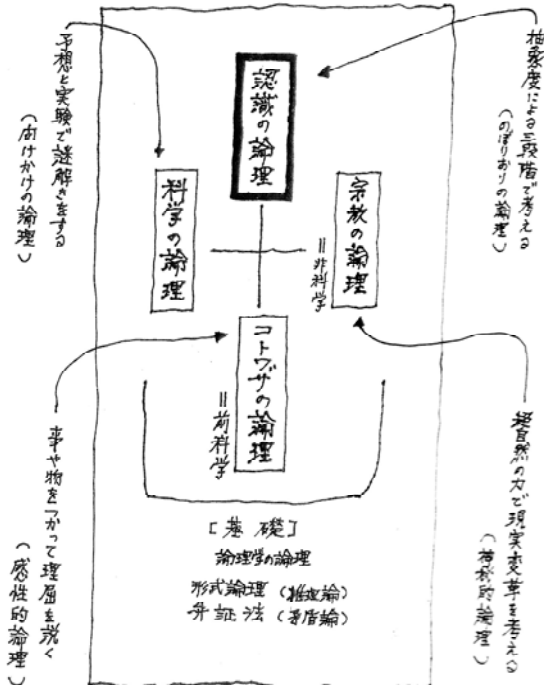 抽象度による三段階で考える
(のぼりおりの論理)
認識の論理
予想と実験で謎解きをする
(問いかけの論理)
宗教の論理
=非科学
科学の論理
コトワザの論理
=前科学
超自然の力で現実変革を考える
(神秘的論理)
事や物をつかって理屈を説く
(感性的論理)
[基礎]
論理学の論理
形式論理(推理論)
弁証法(矛盾論)